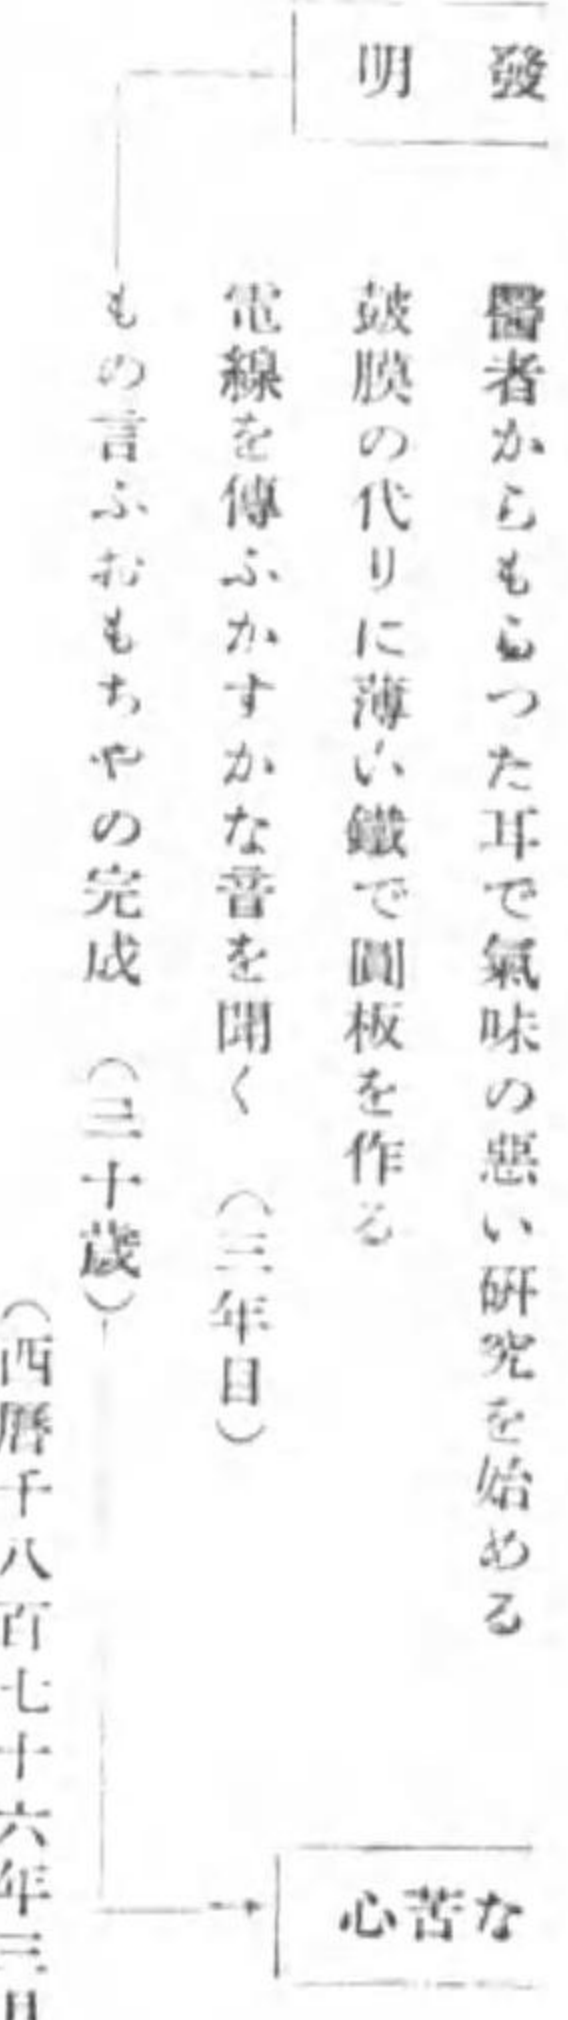 發明
醫者からもらつた耳で氣味の惡い硏究を始める
鼓膜の代りに薄い鐵で圓板を作る
電線を傳ふかすかな音を聞く （三年目）
もの言ふおもちやの完成 （三十歳）
（西曆千八百七十六年三月
な苦心